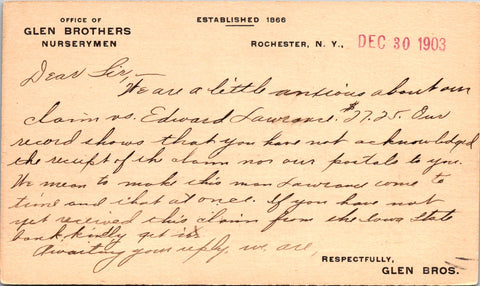 OFFICE OF
GLEN BROTHERS
NURSERYMEN
ESTABLISHED 1866
ROCHESTER, N. Y., DEC 30 1903
Dear Sir,—
We are a little anxious about our
claim vs. Edward Lawrance. $27.25. Our
record shows that you have not acknowledged
the receipt of the claim nor our postals to you.
We mean to make this man Lawrance come to
time and that at once. If you have not
yet received this claim from the Iowa State
bank kindly get it.
Awaiting your reply, we are,
RESPECTFULLY,
GLEN BROS.